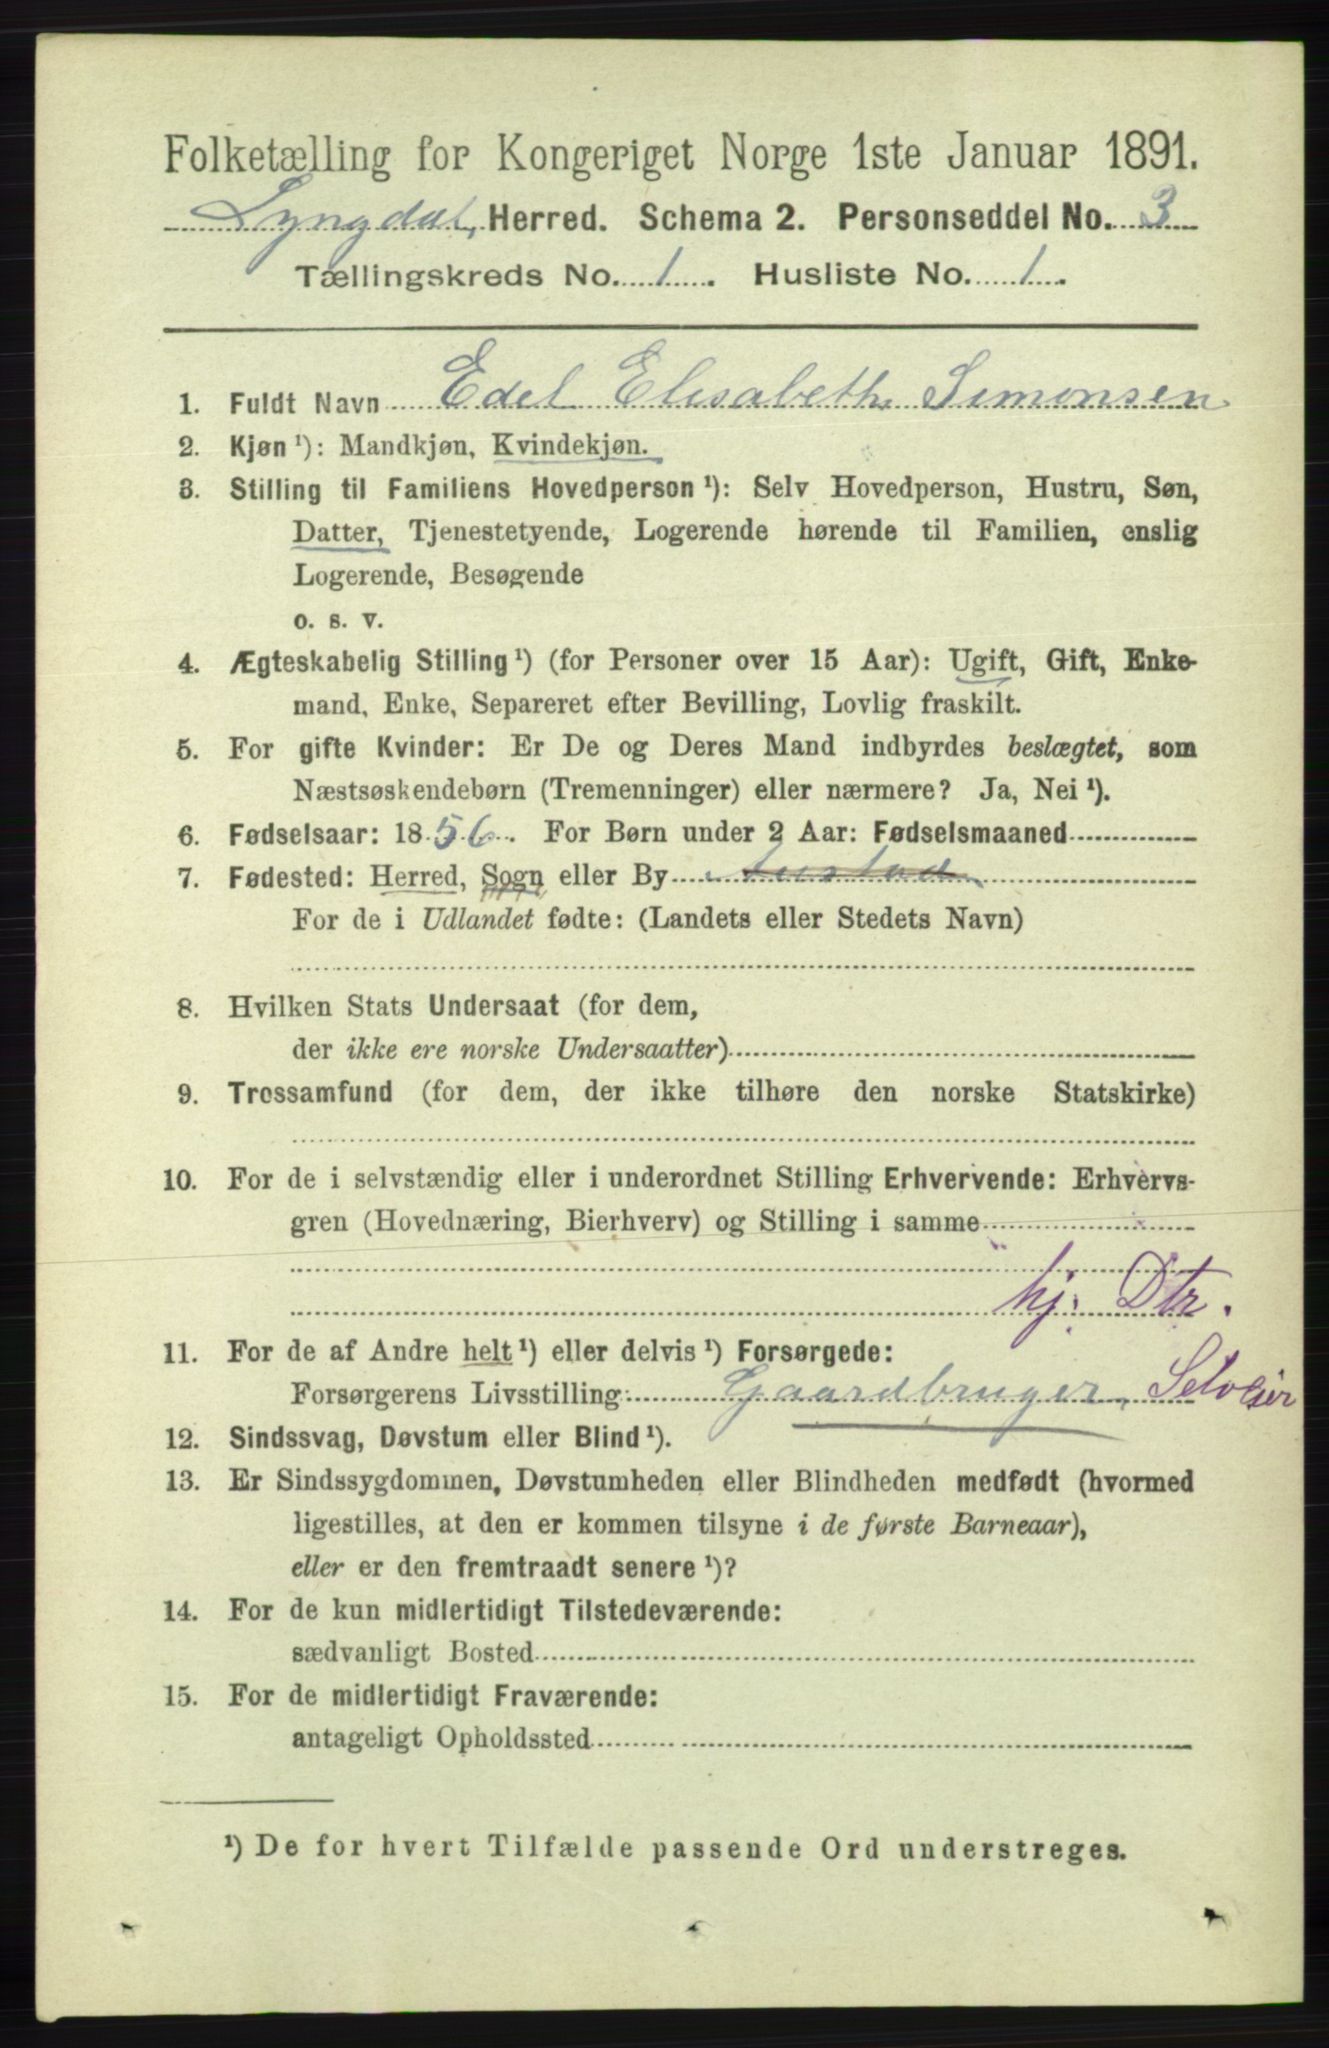 Folketælling for Kongeriget Norge 1ste Januar 1891.
Lyngdal, Herred. Schema 2. Personseddel No. 3
Tællingskreds No. 1. Husliste No. 1.
1. Fuldt Navn Edel Elisabeth Simonsen
2. Kjøn ¹): Mandkjøn, Kvindekjøn.
3. Stilling til Familiens Hovedperson ¹): Selv Hovedperson, Hustru, Søn,
Datter, Tjenestetyende, Logerende hørende til Familien, enslig
Logerende, Besøgende
o. s. v.
4. Ægteskabelig Stilling ¹) (for Personer over 15 Aar): Ugift, Gift, Enke-
mand, Enke, Separeret efter Bevilling, Lovlig fraskilt.
5. For gifte Kvinder: Er De og Deres Mand indbyrdes beslægtet, som
Næstsøskendebørn (Tremenninger) eller nærmere? Ja, Nei ¹).
6. Fødselsaar: 1856. For Børn under 2 Aar: Fødselsmaaned
7. Fødested: Herred, Sogn eller By Austad
For de i Udlandet fødte: (Landets eller Stedets Navn)
8. Hvilken Stats Undersaat (for dem,
der ikke ere norske Undersaatter)
9. Trossamfund (for dem, der ikke tilhøre den norske Statskirke)
10. For de i selvstændig eller i underordnet Stilling Erhvervende: Erhvervs-
gren (Hovednæring, Bierhverv) og Stilling i samme
hj. Dtr.
11. For de af Andre helt ¹) eller delvis ¹) Forsørgede:
Forsørgerens Livsstilling: Gaardbruger, Selveier
12. Sindssvag, Døvstum eller Blind ¹).
13. Er Sindssygdommen, Døvstumheden eller Blindheden medfødt (hvormed
ligestilles, at den er kommen tilsyne i de første Barneaar),
eller er den fremtraadt senere ¹)?
14. For de kun midlertidigt Tilstedeværende:
sædvanligt Bosted
15. For de midlertidigt Fraværende:
antageligt Opholdssted
¹) De for hvert Tilfælde passende Ord understreges.